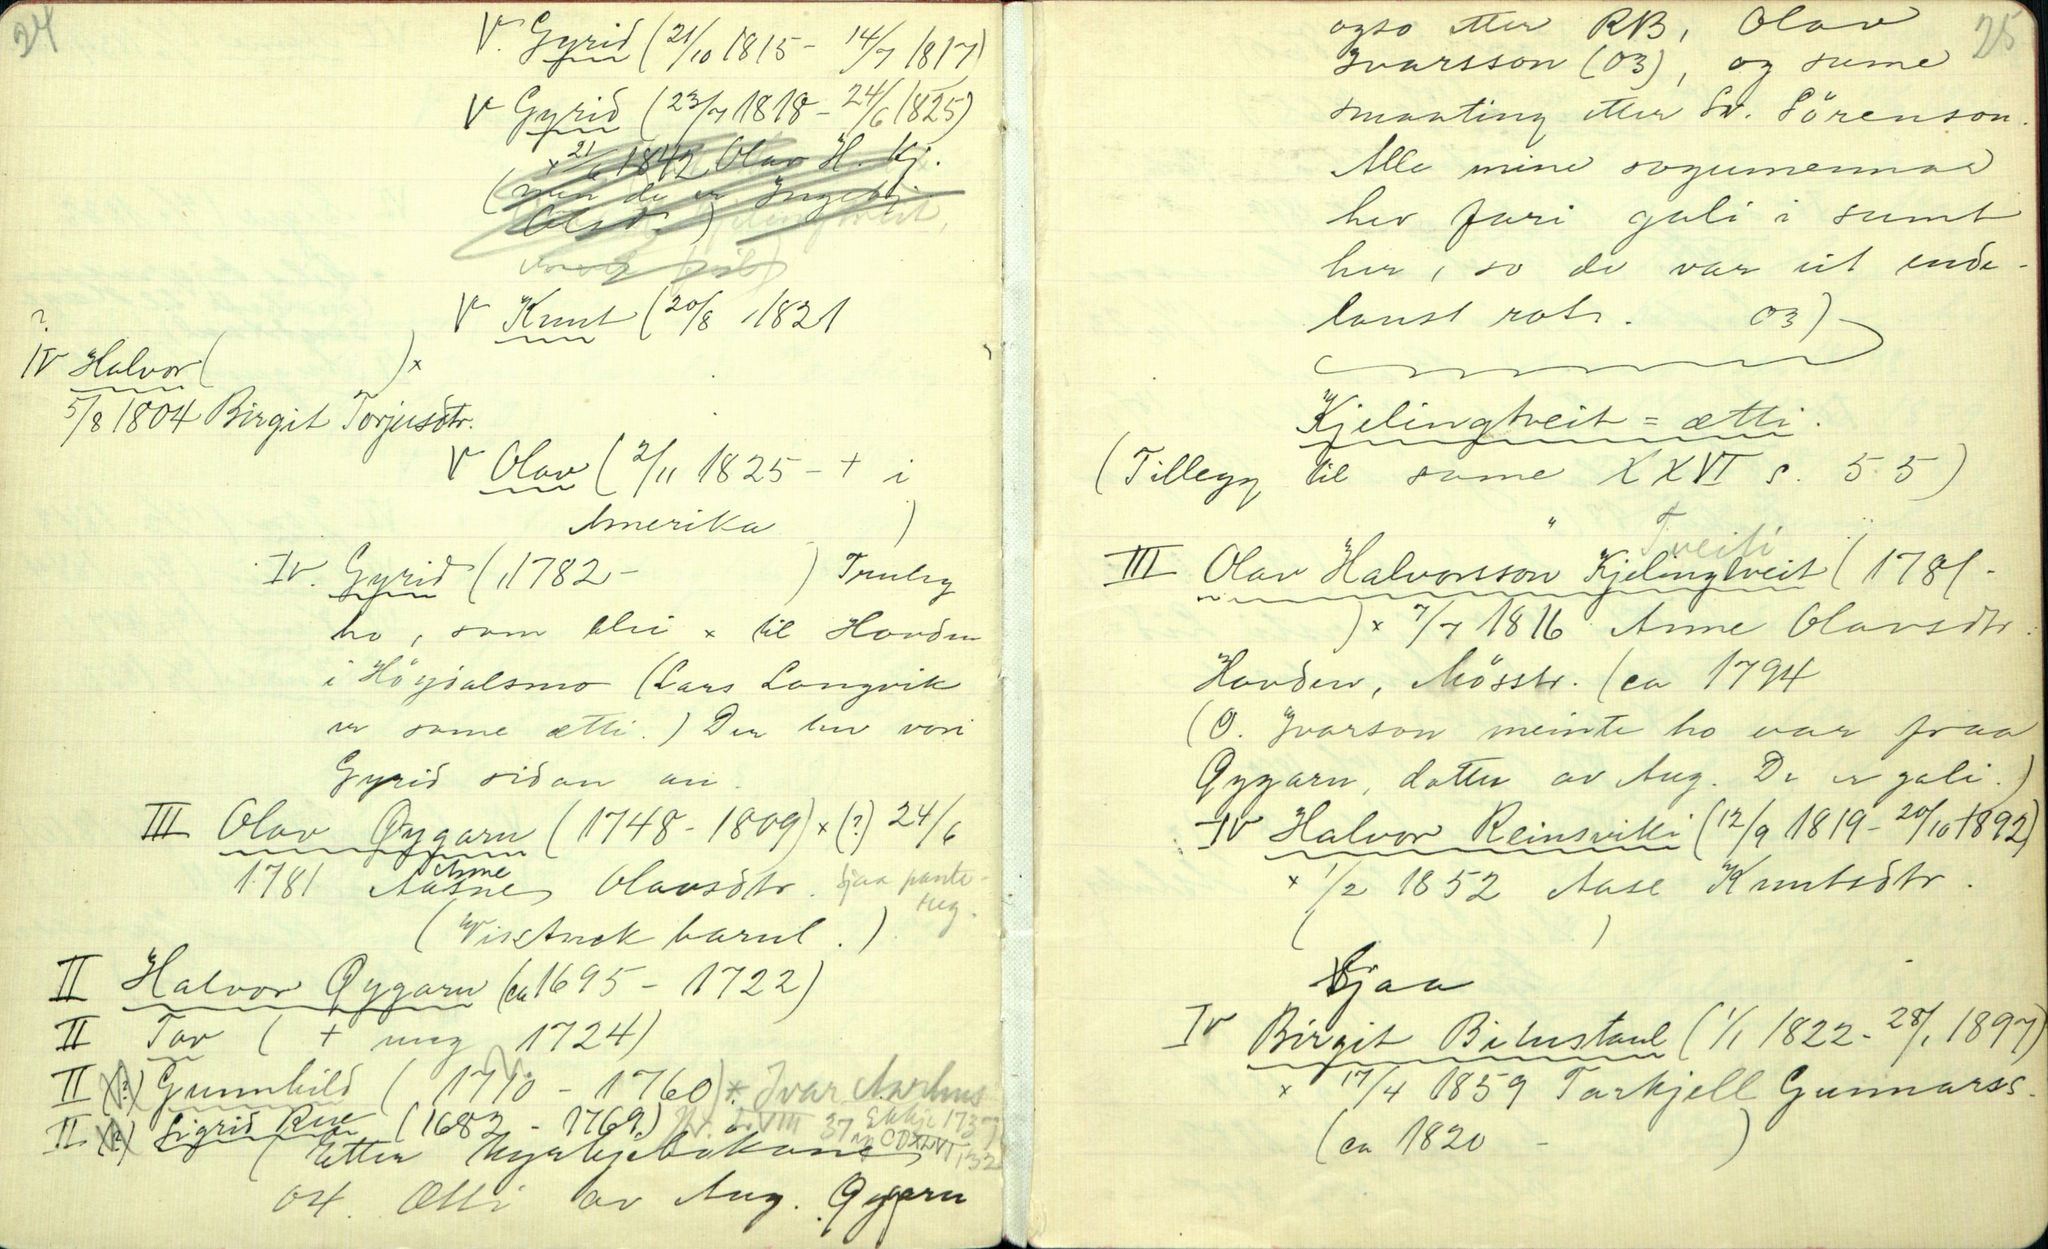 24
V. Gyrid (21/10 1815 - 14/7 1817)
V Gyrid (23/7 1818 - 24/6 1825)
x 21/6 1842 Olav H. Kj.
(men de er Ingebj.
Olsd. )
V Knut (20/8 1821
?
IV Halvor ( ) x
5/8 1804 Birgit Torjusdtr.
V Olav (2/11 1825 - + i
Amerika )
IV. Gyrid (1782 - ) Truleg
ho, som blei x til Hovden
i Höydalsmo (Lars Longvik
er same ætti.) Der hev vori
Gyrid sidan au.
III Olav Øygarn (1748 - 1809) x (?) 24/6
1781 Aasne Anne Olavsdtr. sjaa
(Visstnok barnl.)
II Halvor Øygarn (ca 1695 - 1722)
II Tov ( + ung 1724)
II (?) Gunnhild ( 1710 - 1760) x Ivar Aarhus
II (?) Sigrid Rue (1682 - 1769)
(Etter kyrkjebøkane
04. Ætti av Aug. Øygarn
25
ogso etter RB, Olav
Ivarsson (03), og sume
smaating etter Sv. Sörenson.
Alle mine sogumennar
hev fari gali i sumt
her, so de var eit ende-
laust rot. 03)
Kjelingtveit = ætti.
(Tillegg til same XXVI s. 55)
Tveiti
III Olav Halvorsson Kjelingtveit (1781 -
) x 7/7 1816 Anne Olavsdtr.
Hovden, Mösstr. (ca 1794
(O. Ivarson meinte ho var fraa
Øygarn, dotter av Aug. De er gali.)
IV Halvor Reinsviki (12/9 1819 - 20/10 1892)
x 1/2 1852 Aase Knutsdtr.
( )
Sjaa
IV Birgit Bitustaul (1/1 1822 - 28/1 1897)
x 17/4 1859 Tarkjell Gunnarss.
(ca 1820 - )